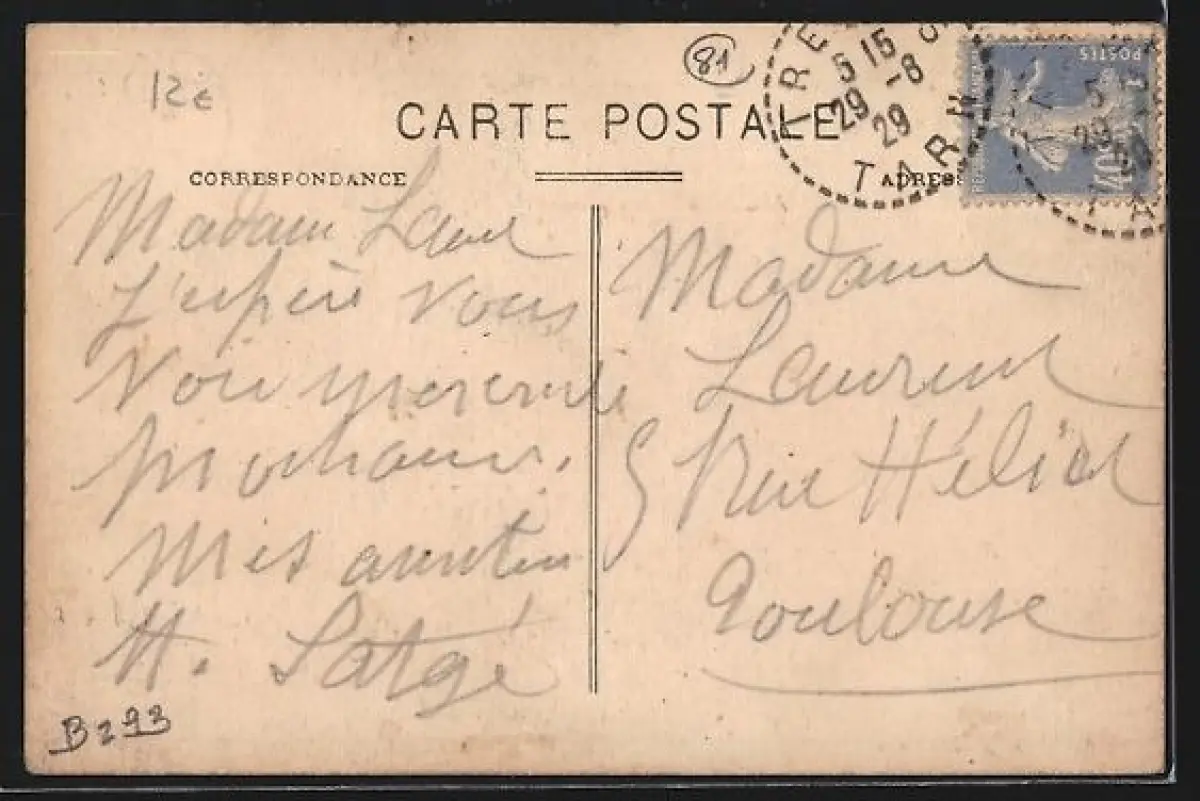 12€
81
CARTE POSTALE
TRE
5 15
29 -8
29
TARN
POSTES
40
CORRESPONDANCE
ADRES
Madame Laure
J'espère vous
Voir mercredi
prochain.
Mes
H. Satgé
Madame
Laurent
5 Rue Héliot
Toulouse
B293